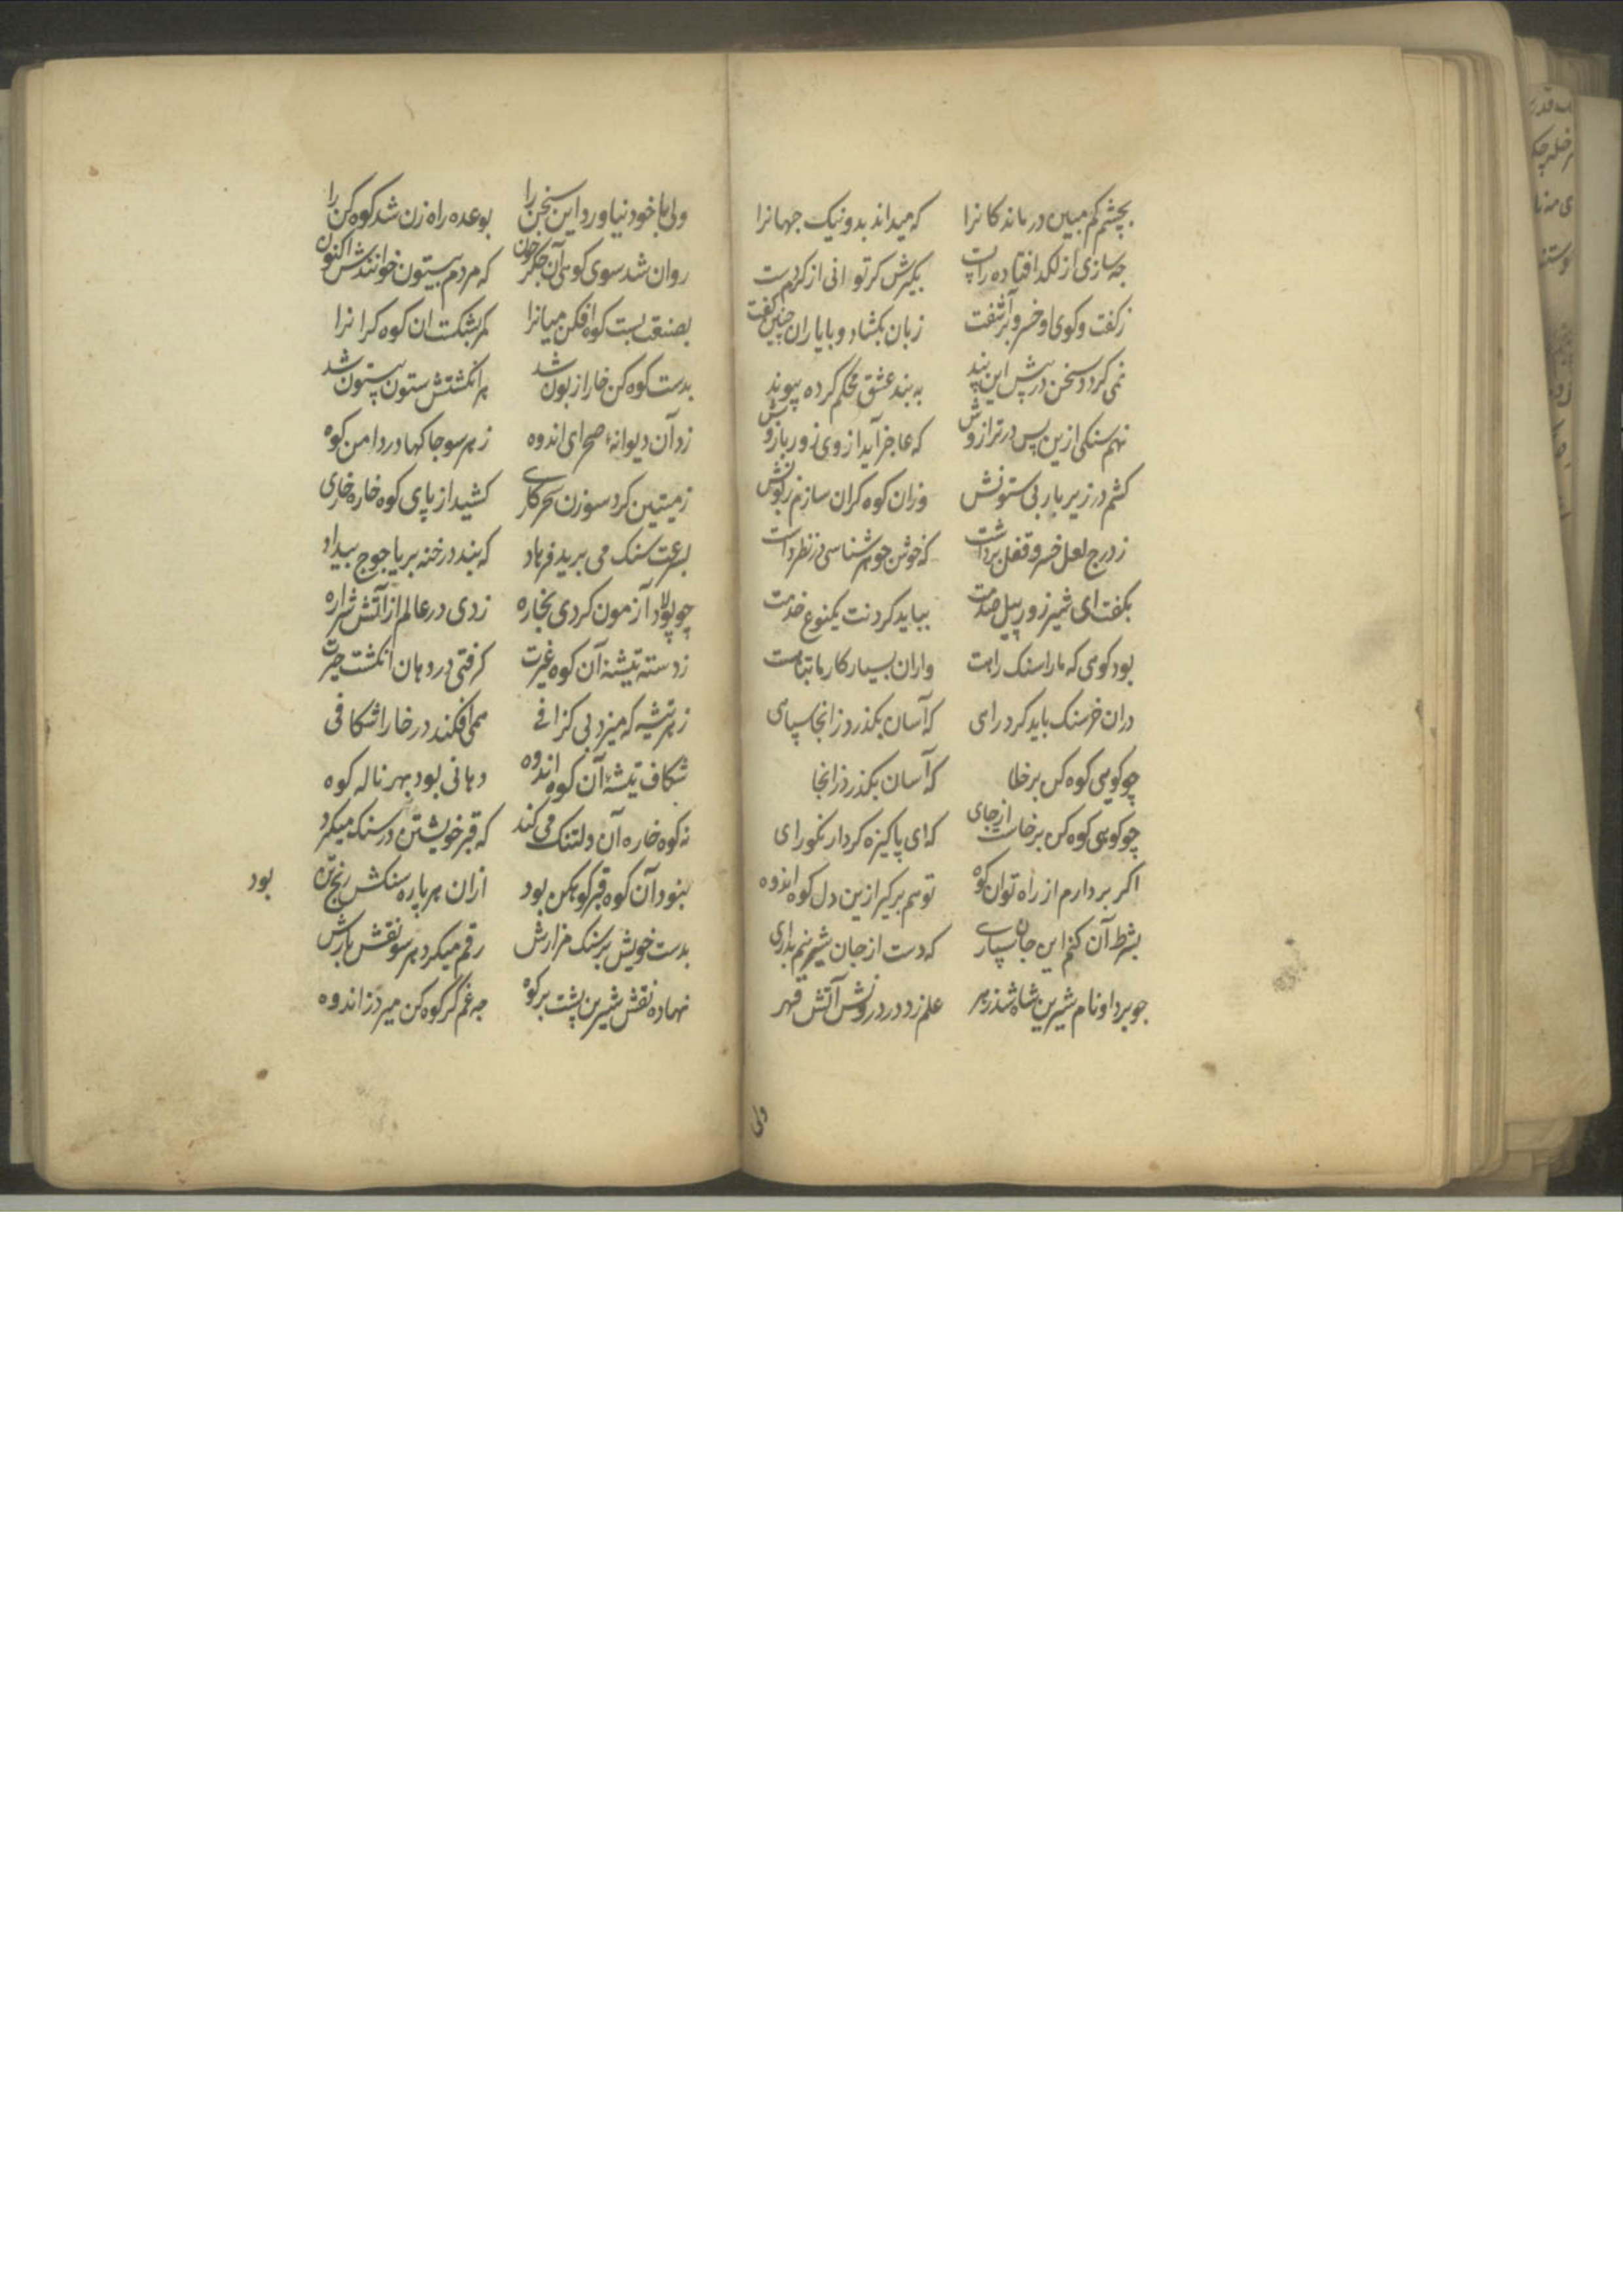 بچشم کم مبین درماندکانرا که میداند بدونیک جهانرا
چه سازی از لکد افتاده را پست بکیرش کر توانی از کرم دست
ز کفت وکوی او خسرو برآشفت زبان بکشاد و با یاران چنین کفت
نمی کردد سخن در پیش این بند به بند عشق محکم کرده پیوند
نهم سنکی ازین پس در ترازوش که عاجز آید از وی زور بازوش
کشم در زیر بار بی ستونش وزان کوه کران سازم زبونش
ز درج لعل خسرو قفل برداشت که خوش جوهرشناسی در نظر داشت
بکفت ای شیر زور پیل صدمت بباید کردنت یکنوع خدمت
بود کوهی که ما را سنک راهست وزان بسیار کار ما تباهست
دران خرسنک باید کرد رای که آسان بکذرد زانجا سپاهی
چو کوهی کوه کن برخا که آسان بکذرد زانجا
چو کوهی کوه کن برخاست از جای که ای پاکیزه کردار نکورای
اکر بردارم از راه تو آن کوه تو هم برکیر ازین دل کوه اندوه
بشرط آن کنم این جان سپاری که دست از جان شیرینم بداری
چو برد او نام شیرین شاه شد زهر علم زد در درونش آتش قهر
ولی
ولی با خود نیاورد این سخن را بوعده راه زن شد کوه کن را
روان شد سوی کوهی آن جکرخون که مردم بیستون خوانندش اکنون
بصنعت بست کوه افکن میانرا کمر بشکست ان کوه کرانرا
بدست کوه کن خارا زبون شد هر انکشتش ستون بیستون شد
زد آن دیوانهٔ صحرای اندوه ز هر سو چاکها در دامن کوه
ز میتین کرد سوزن سحرکاری کشید از پای کوه خاره خاری
بسرعت سنک می برید فرهاد که بندد رخنه بر یاجوج بیداد
چو پولاد آزمون کردی بخاره زدی در عالم از آتش شراره
ز دسته تیشه آن کوه غیرت کرفتی در دهان انکشت حیرت
ز هر تیشه که میزد بی کزافی همی افکند در خارا شکافی
شکاف تیشهٔ آن کوه اندوه دهانی بود بهر ناله کوه
نه کوه خاره آن دلتنک می کند که قبر خویشتن در سنک میکرد
نبود آن کوه قبر کوهکن بود ازان هر پاره سنکش رنج تن بود
بدست خویش بر سنک مزارش رقم میکرد هر سو نقش یارش
نهاده نقش شیرین پشت بر کوه چه غم کر کوه کن میرد ز اندوه